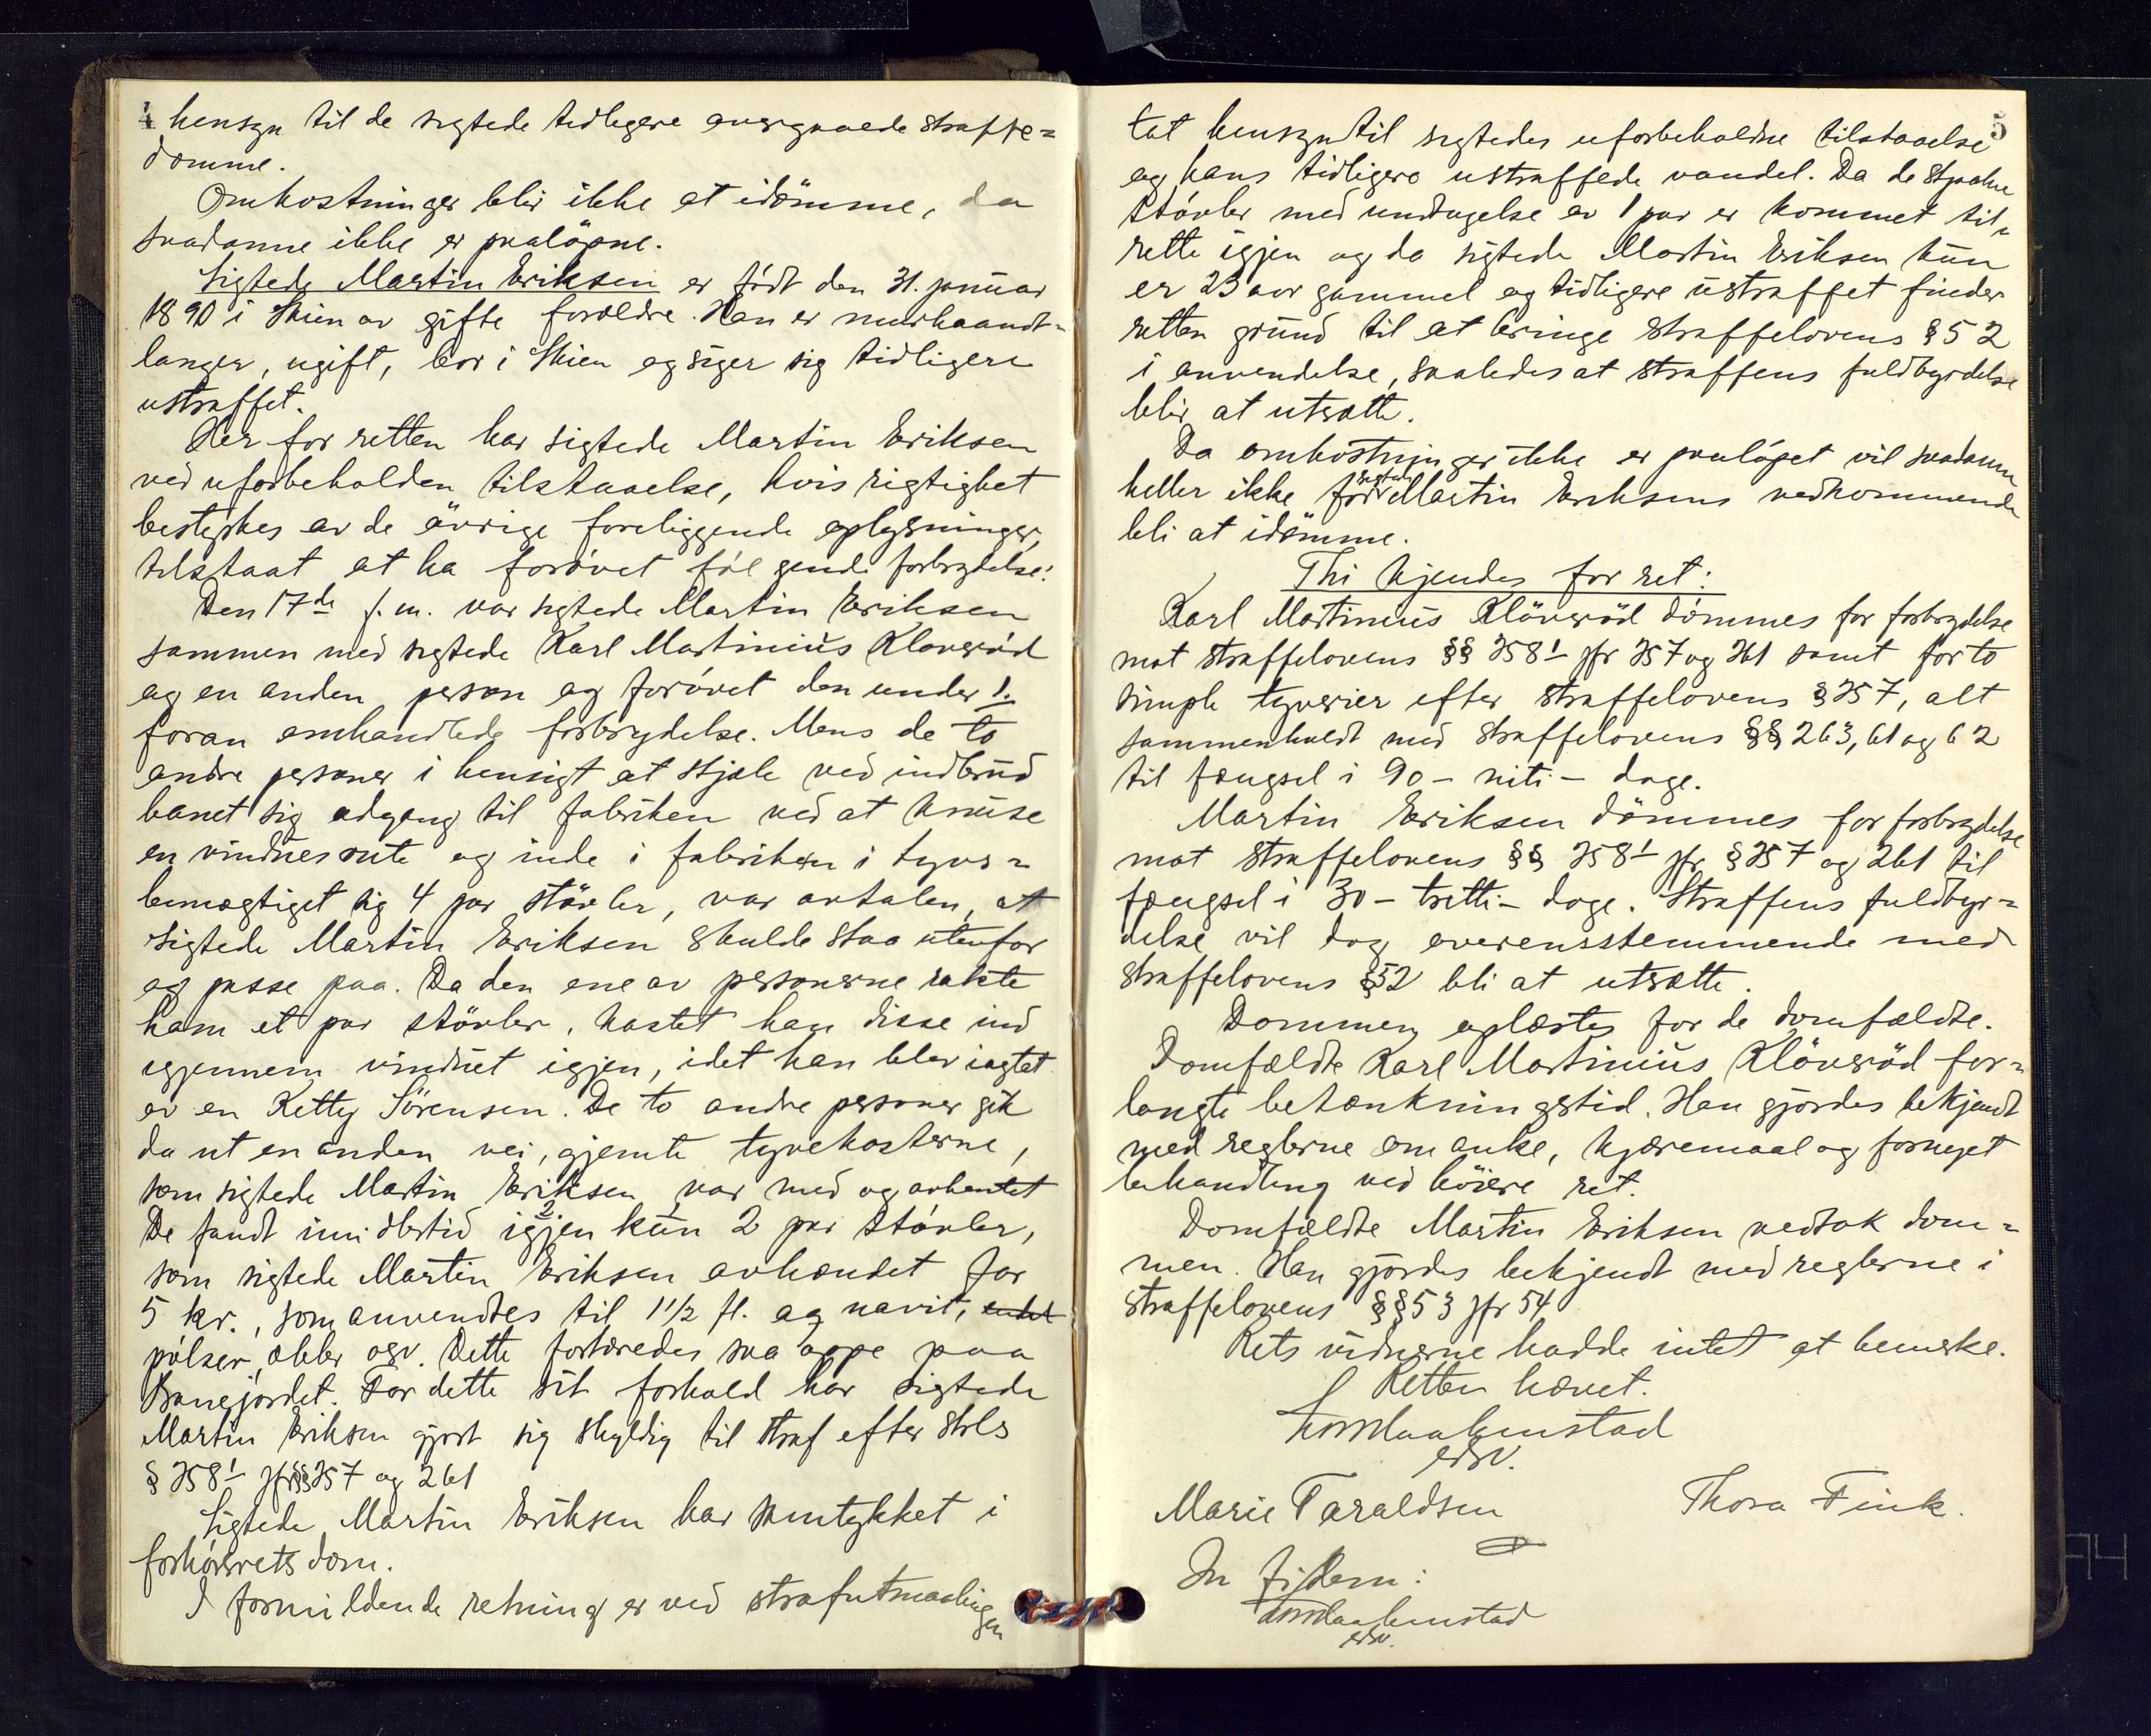 4
hensyn til de sigtede tidligere overgaaede straffe=
domme.
Omkostninger blir ikke at idömme, da
saadanne ikke er paalöpne.
Sigtede Martin Eriksen er födt den 31. januar
1890 i Skien av gifte forældre. Han er murhaandt-
langer, ugift, bor i Skien og siger sig tidligere
ustraffet.
Her for retten har sigtede Martin Eriksen
ved uforbeholden tilstaaelse, hvis rigtighet
bestyrkes av de övrige foreliggende oplysninger,
tilstaat at ha forövet fölgende forbrydelse:
Den 17de f.m. var sigtede Martin Eriksen
sammen med sigtede Karl Martinius Klöveröd
og en anden person og forövet den under 1.
foran omhandlede forbrydelse. Mens de to
andre personer i hensigt at stjæle ved indbrud
banet sig adgang til fabriken ved at knuse
en vindusrute og inde i fabriken i tyvs=
bemægtiget sig 4 par stövler, var avtalen, at
sigtede Martin Eriksen skulde staa utenfor
og passe paa. Da den ene av personerne rakte
ham et par stövler, kastet han disse ind
igjennem vinduet igjen, idet han blev iagtat
av en Ketty Sörensen. De to andre personer gik
da ut en anden vei, gjemte tyvekosterne,
som sigtede Martin Eriksen var med og avhentet
De fandt imidlertid igjen kun 2 par stövler,
som sigtede Martin Eriksen avhændet for
5 kr., som anvendtes til 1 1/2 fl. aqvavit,
pölser, æbler osv. Dette fortæredes saa oppe paa
Banejordet. For dette sit forhold har sigtede
Martin Eriksen gjort sig skyldig til straf efter strls
§ 258¹ jfr §§ 257 og 261
Sigtede Martin Eriksen har samtykket i
forhörsretsdom.
I formildende retning er ved strafutmaalingen
5
tat hensyn til sigtedes uforbeholdne tilstaaelse
og hans tidligere ustraffede vandel. Da de stjaalne
stövler med undtagelse av 1 par er kommet til-
rette igjen og da sigtede Martin Eriksen kun
er 23 aar gammel og tidligere ustraffet finder
retten grund til at bringe straffelovens § 52
i anvendelse, saaledes at straffens fuldbyrdelse
blir at utsætte.
Da omkostninger ikke er paalöpet vil saadanne
heller ikke for sigtede Martin Eriksens vedkommende
bli at idömme.
Thi kjendes for ret:
Karl Martinius Klöveröd dömmes for forbrydelse
mot straffelovens §§ 258¹ jfr 257 og 261 samt for to
simple tyverier efter straffelovens § 257, alt
sammenholdt med straffelovens §§ 263, 61 og 62
til fængsel i 90 - niti - dage.
Martin Eriksen dömmes for forbrydelse
mot straffelovens §§ 258¹ jfr § 257 og 261 til
fængsel i 30 - tretti - dage. Straffens fuldbyr=
delse vil dog overensstemmende med
straffelovens § 52 bli at utsætte.
Dommen oplæstes for de domfældte.
Domfældte Karl Martinius Klöveröd for=
langte betænkningstid. Han gjördes bekjendt
med reglerne om anke, kjæremaal og fornyet
behandling ved höiere ret.
Domfældte Martin Eriksen vedtok dom=
men. Han gjördes bekjendt med reglerne i
straffelovens §§ 53 jfr 54
Retsvidnerne hadde intet at bemerke.
Retten hævet.
edsv.
Marie Taraldsen Thora Fink.
In fidem:
edsv.